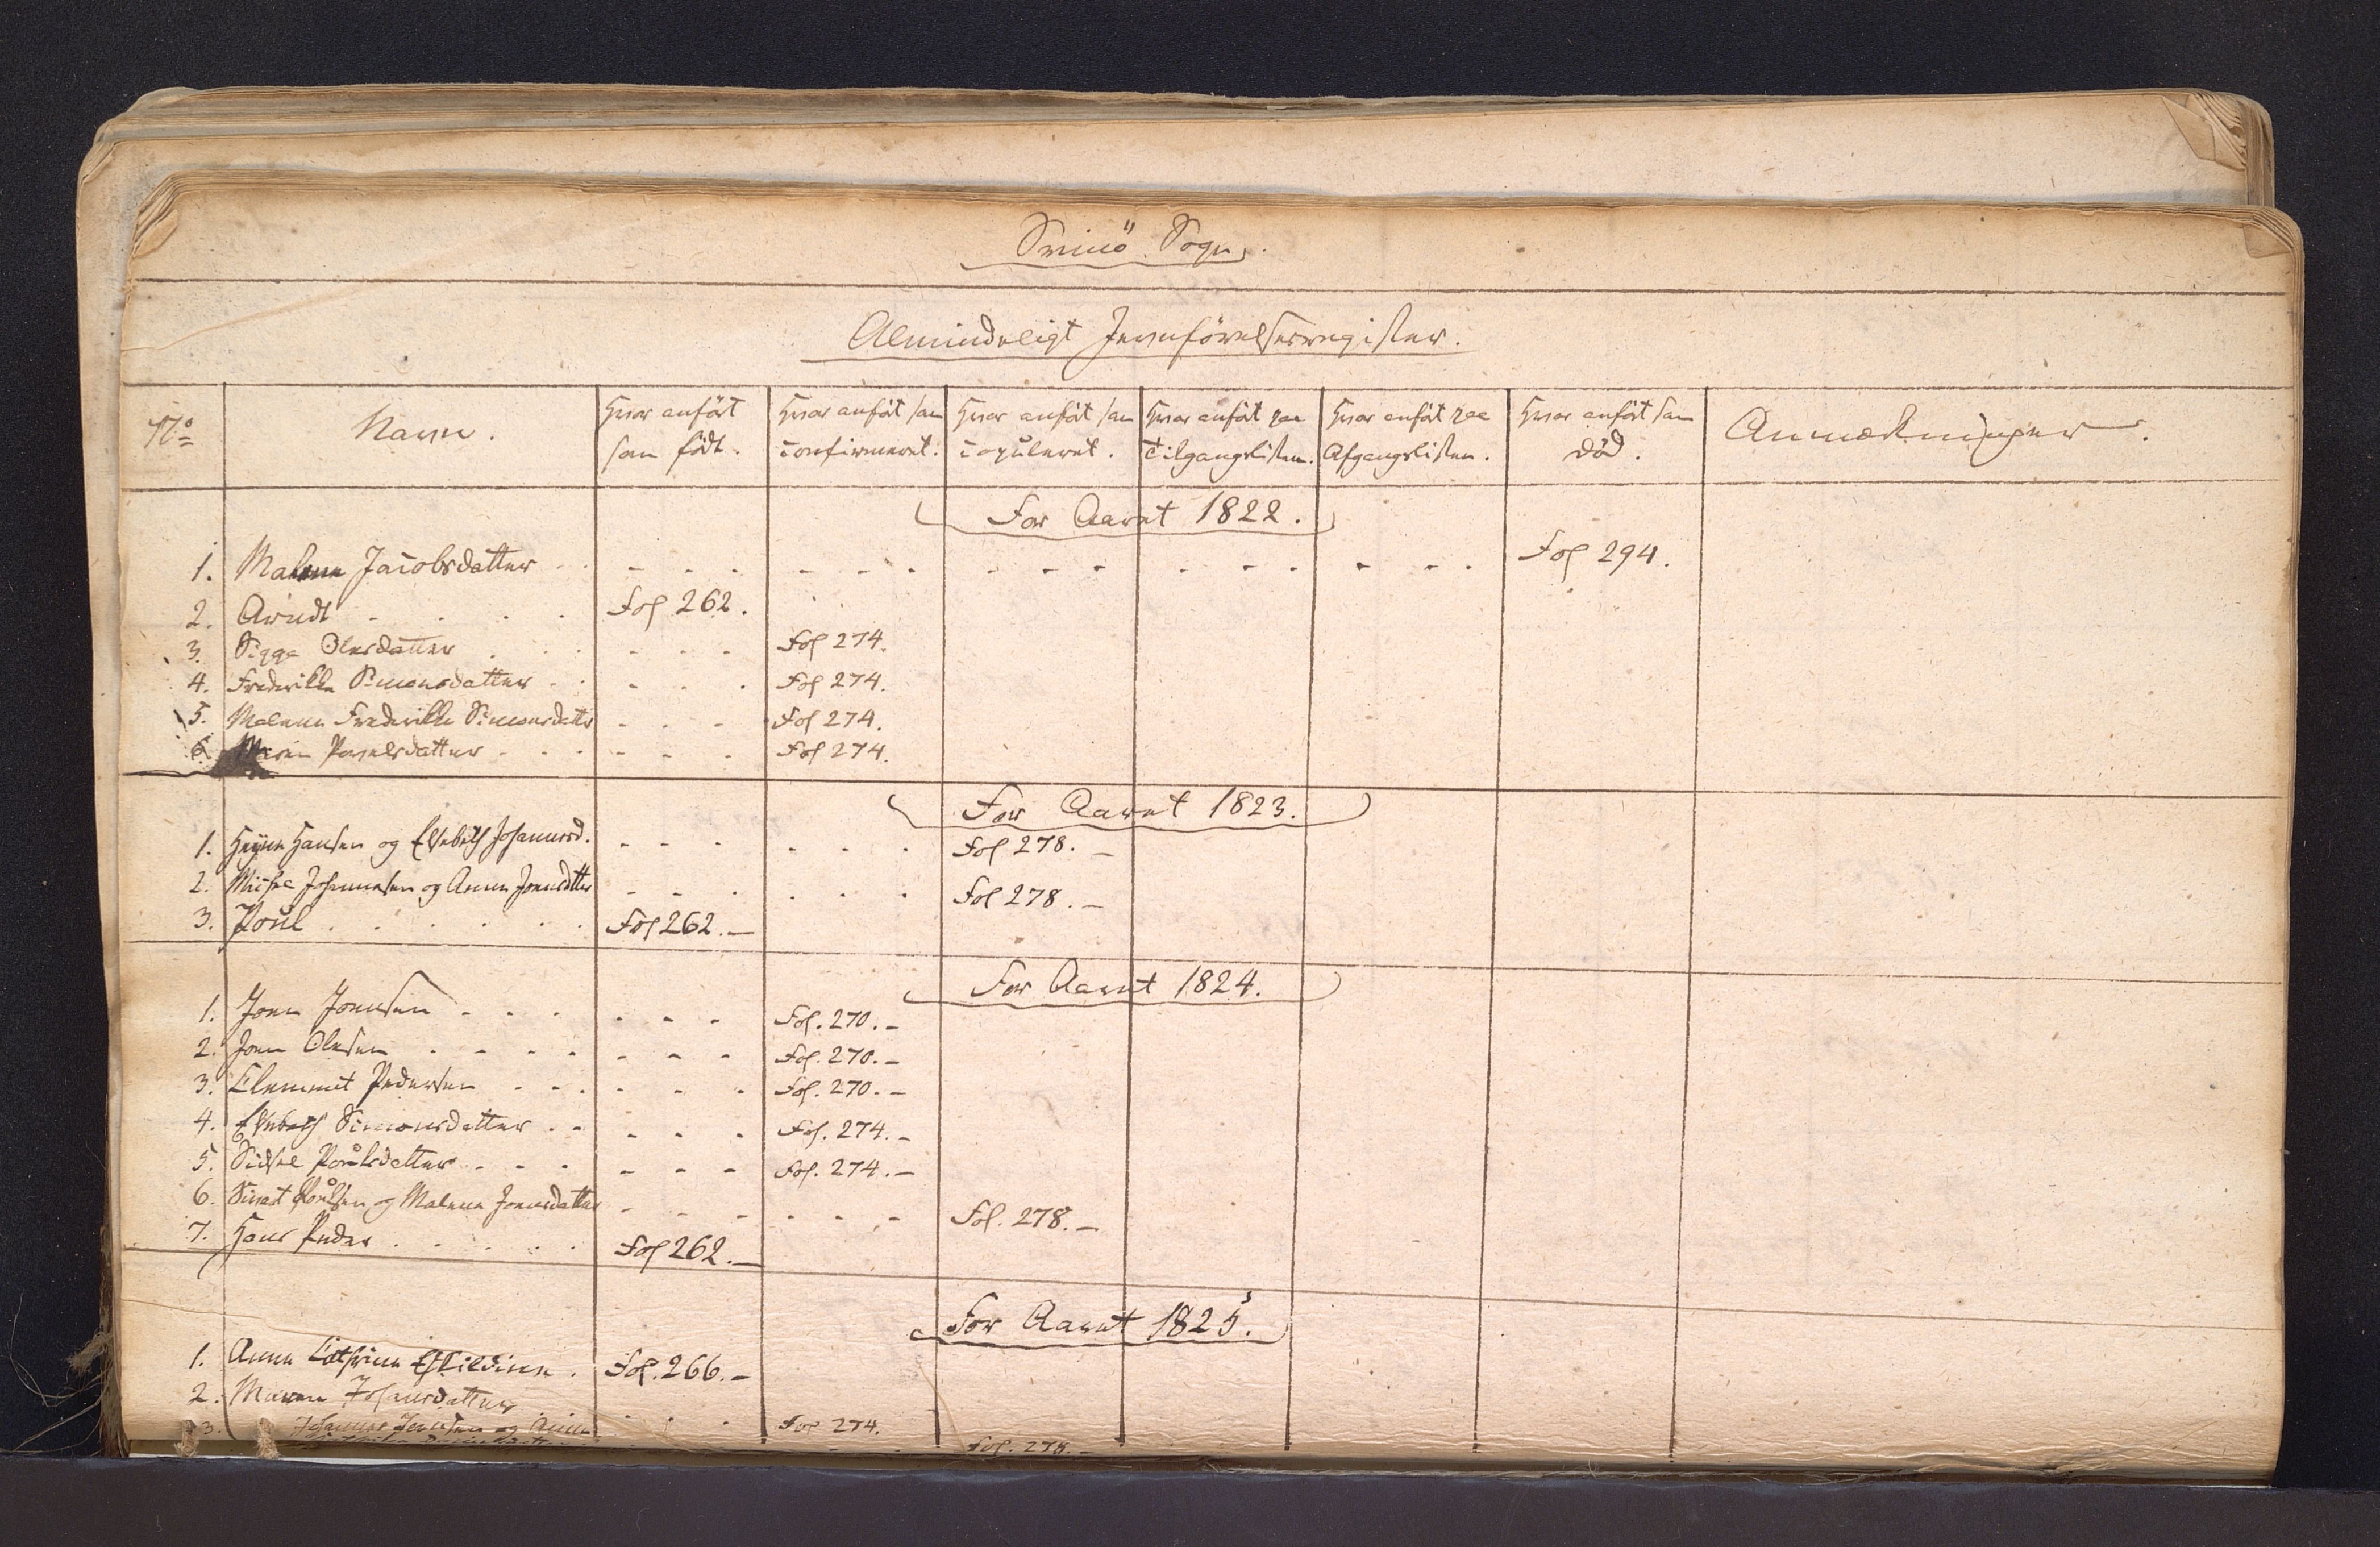 Svinö Sogn.
Almindeligt Jevnförelsesregister.
No Navn. Hvor anfört som födt. Hvor anfört som confirmeret. Hvor anfört som copuleret. Hvor anfört paa Tilgangslisten. Hvor anfört paa Afgangslisten. Hvor anfört som död. Anmærkninger.
For Aaret 1822.
1. Malene Jacobsdatter Fol 294.
2. Arndt Fol 262.
3. Sigga Olesdatter Fol 274.
4. Frederikke Simonsdatter Fol 274.
5. Malene Frederikke Simonsdattr Fol 274.
6. Maren Povelsdatter Fol 274.
For Aaret 1823.
1. Heyne Hansen og Elsebeth Johannesd. Fol 278.
2. Michel Johannesen og Anne Joensdttr Fol 278.
3. Poul Fol 262.
For Aaret 1824.
1. Joen Joensen Fol. 270.
2. Joen Olesen Fol. 270.
3. Clemmet Pedersen Fol. 270.
4. Elsebeth Simonsdatter Fol. 274.
5. Sidsel Poulsdatter Fol. 274.
6. Sivert Poulsen og Malene Joensdatter Fol. 278.
7. Hans Peder Fol 262.
For Aaret 1825.
1. Anna Cathrine Eskildine Fol. 266.
2. Maren Johansdatter Fol 274.
3. Johannes Joensen og Anne
Fol. 278.